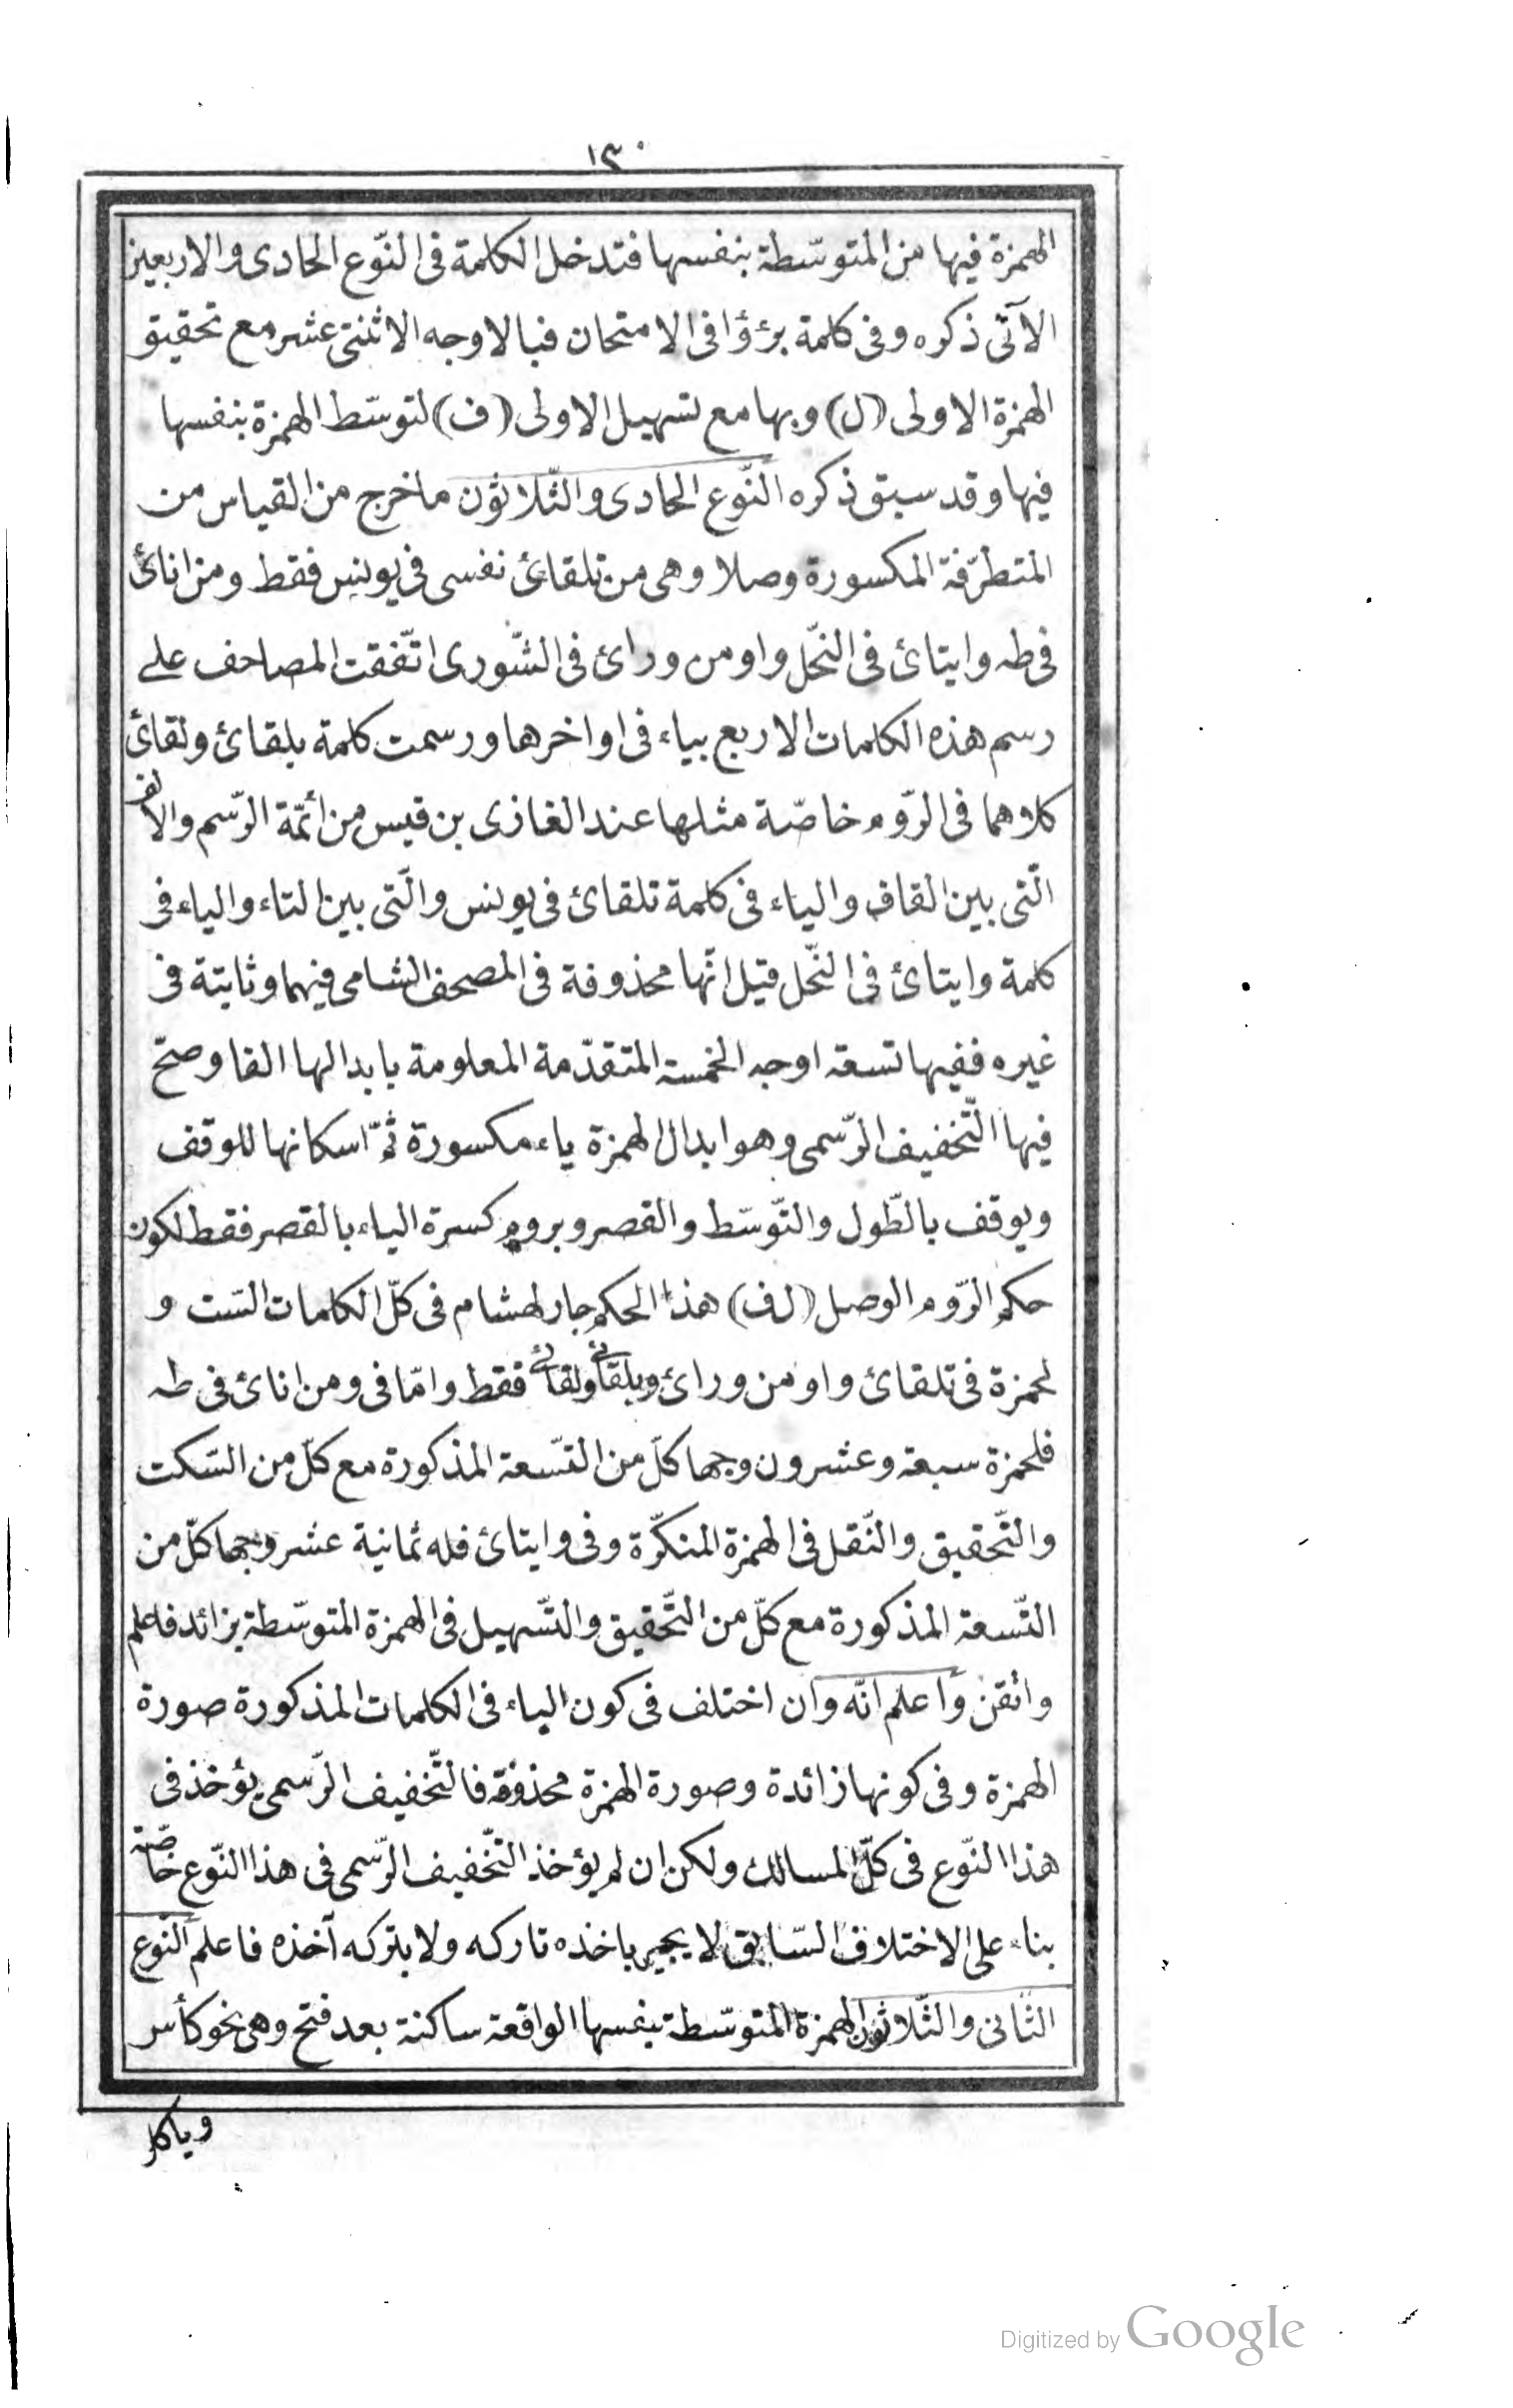 ١٣٠
الهمزة فيها من المتوسّطة بنفسها فتدخل الكلمة فى النّوع الحادى والاربعين
الآتى ذكره وفى كلمة برؤؤا فى الامتحان فبالاوجه الاثنتى عشر مع تحقيق
الهمزة الاولى (ل) وبها مع تسهيل الاولى (ف) لتوسّط الهمزة بنفسها
فيها وقد سبق ذكره النّوع الحادى والثّلاثون ما خرج من القياس من
المتطرّفة المكسورة وصلا وهى من تلقائ نفسى فى يونس فقط ومن انائ
فى طه وايتائ فى النّحل واو من ورائ فى الشّورى اتّفقت المصاحف على
رسم هذه الكلمات الاربع بياء فى اواخرها ورسمت كلمة بلقائ ولقائ
كلاهما فى الرّوم خاصّة مثلها عند الغازى بن قيس من أئمّة الرّسم والالف
الّتى بين القاف والياء فى كلمة تلقائ فى يونس والّتى بين التاء والياء فى
كلمة وايتائ فى النّحل قيل انّها محذوفة فى المصحف الشامى فيهما وثابتة فى
غيره ففيها تسعة اوجه الخمسة المتقدّمة المعلومة بابدالها الفا وصحّ
فيها التّخفيف الرّسمى وهو ابدال الهمزة ياء مكسورة ثمّ اسكانها للوقف
ويوقف بالطّول والتّوسّط والقصر وبروم كسرة الياء بالقصر فقط لكون
حكم الرّوم الوصل (لف) هذا الحكم جار لهشام فى كلّ الكلمات السّت و
لحمزة فى تلقائ واو من ورائ وبلقائ ولقائ فقط وامّا فى ومن انائ فى طه
فلحمزة سبعة وعشرون وجها كلّ من التّسعة المذكورة مع كلّ من السّكت
والتّحقيق والنّقل فى الهمزة المنكّرة وفى وايتائ فله ثمانية عشر وجها كلّ من
التّسعة المذكورة مع كلّ من التّحقيق والتّسهيل فى الهمزة المتوسّطة بزائد فاعلم
واتقن واعلم انّه وان اختلف فى كون الياء فى الكلمات المذكورة صورة
الهمزة وفى كونها زائدة وصورة الهمزة محذوفة فالتّخفيف الرّسمى يؤخذ فى
هذا النّوع فى كلّ المسالك ولكن ان لم يؤخذ التّخفيف الرّسمى فى هذا النّوع خاصّة
بناء على الاختلاف السّابق لا يجبر باخذه تاركه ولا بتركه آخذه فاعلم النّوع
الثّانى والثّلاثون الهمزة المتوسّطة بنفسها الواقعة ساكنة بعد فتح وهى نحو كأس
وياكل
Digitized by Google